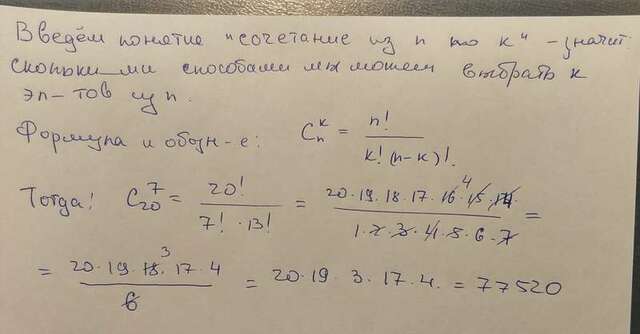 Введём понятие "сочетание из n по k" - значит
сколькими способами мы можем выбрать k
эл-тов из n.
Формула и обозн-е: C_n^k = n! / k!(n-k)!
Тогда: C_20^7 = 20! / 7!·13! = 20·19·18·17·16·15·14 / 1·2·3·4·5·6·7 =
= 20·19·18·17·4 / 6 = 20·19·3·17·4 = 77520